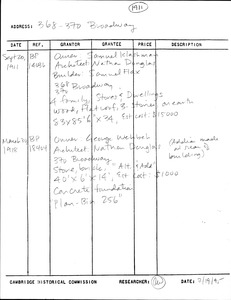 1911
ADDRESS: 368-370 Broadway
DATE REF. GRANTOR GRANTEE PRICE DESCRIPTION
Sept 20, BP Owner: Samuel
1911 Architect: Nathan Douglas
Builder: Samuel
368 Broadway
370
4 family, Stores & Dwellings
wood, flat roof, 3-stories on earth
83x85'6"x34, Est cost: $15000
March BP Owner: George
1918 Architect: Nathan Douglas
370 Broadway
Store, brick, "Alt. & Add"
40'x6'x14', Est cost: $1000
Concrete foundation
Plan-Bin 256"
(Addition made
at rear of
building)
CAMBRIDGE HISTORICAL COMMISSION RESEARCHER: DATE: